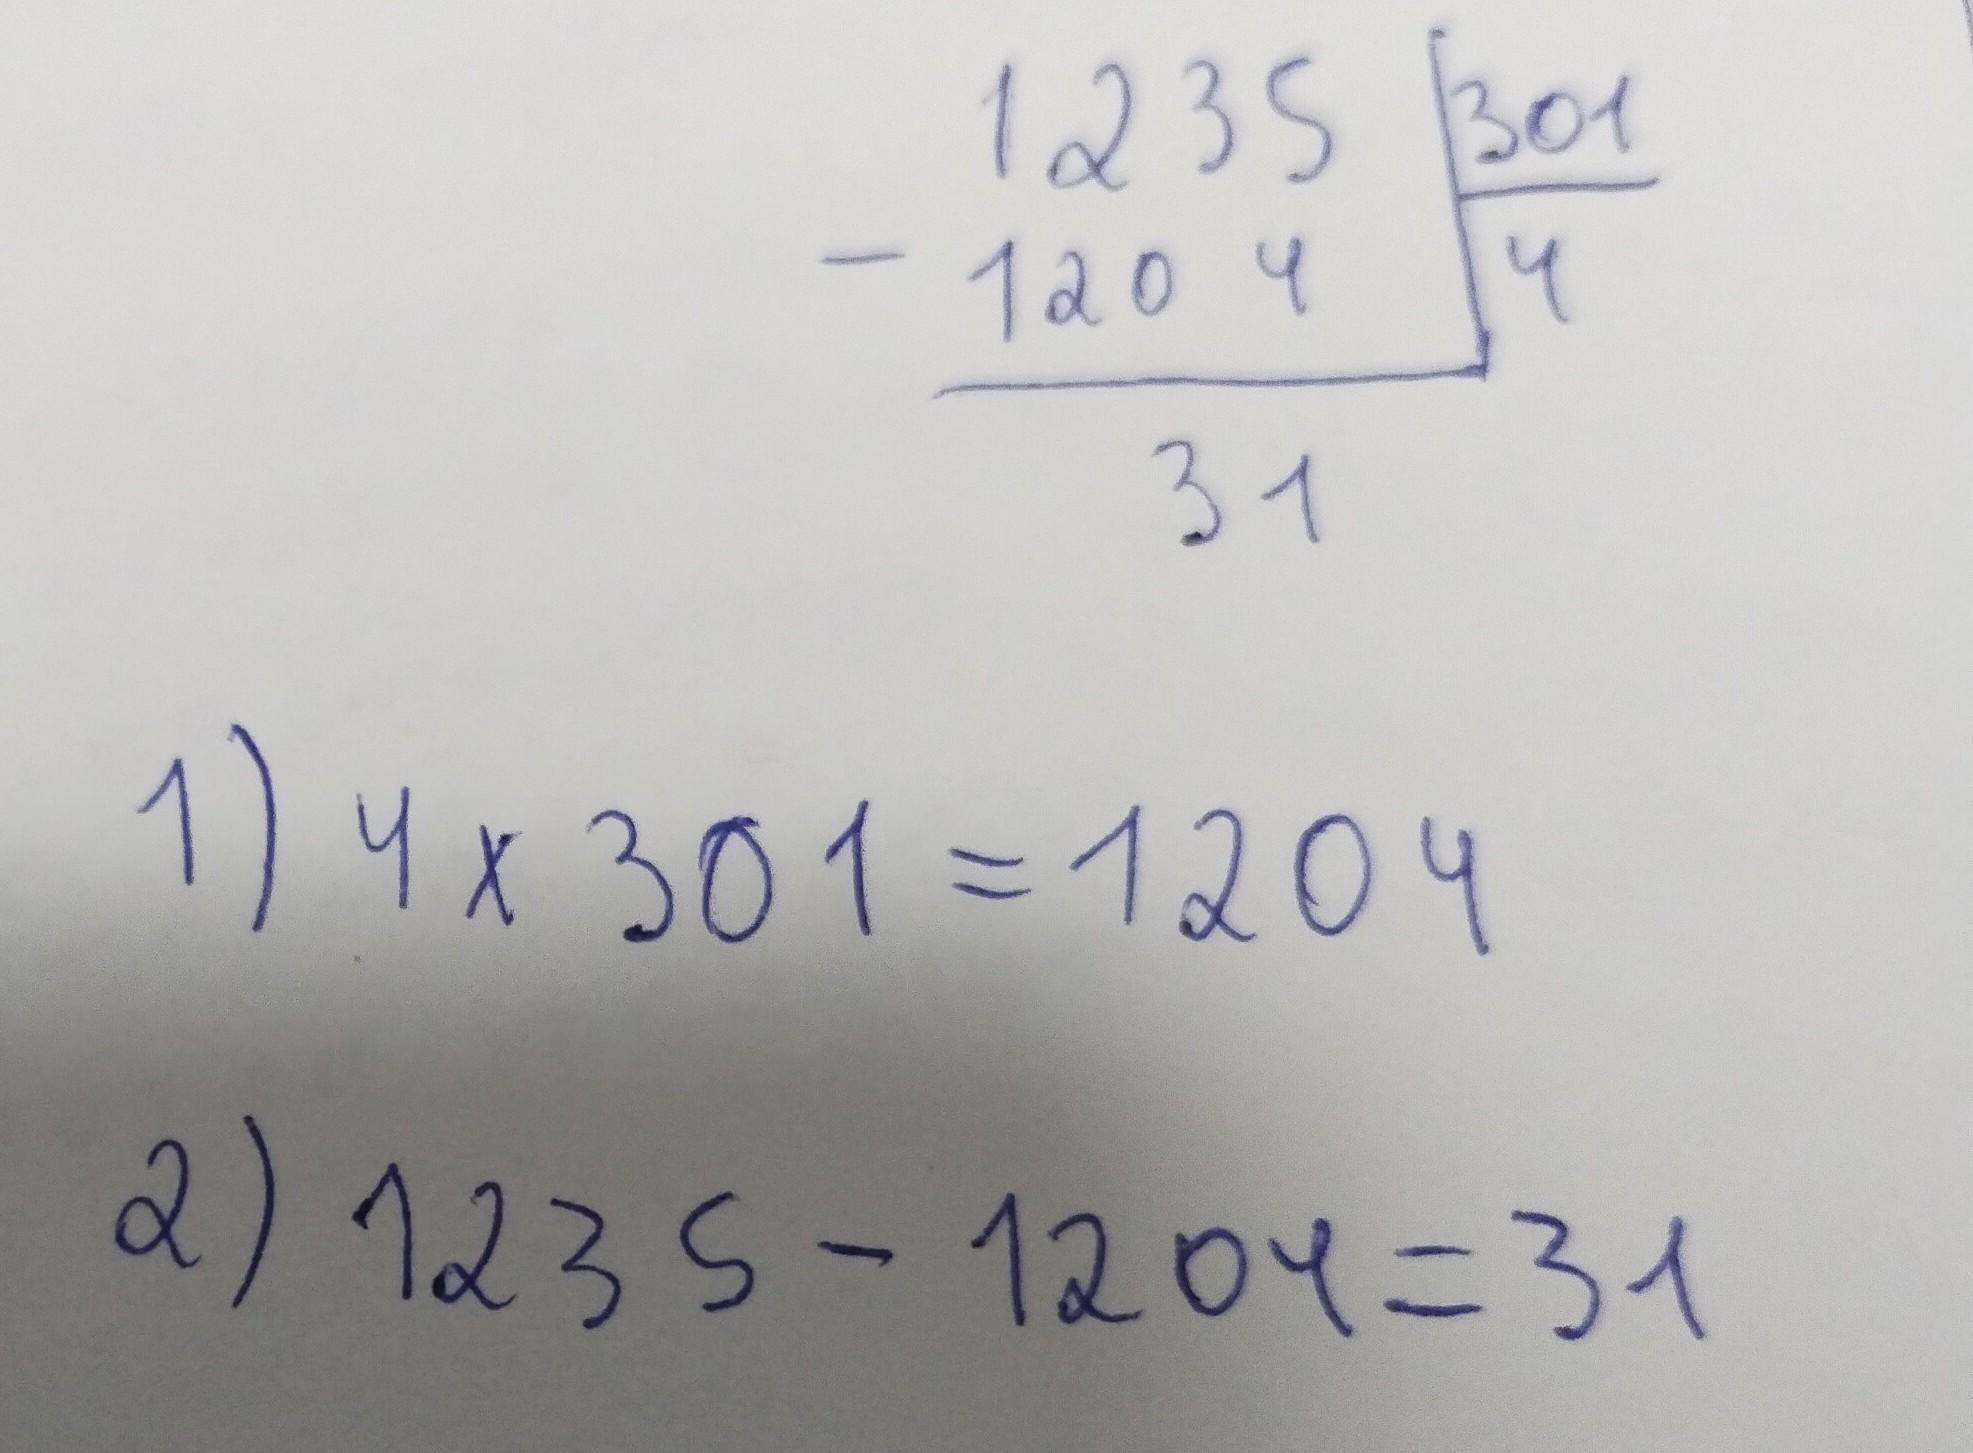 1235 301
- 1204 4
31
1) 4 x 301 = 1204
2) 1235 - 1204 = 31